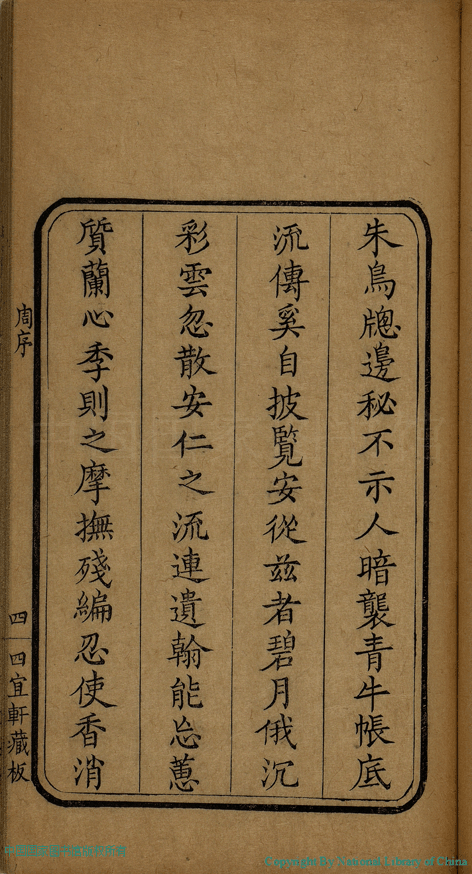 朱鳥牕邊秘不示人暗襲青牛帳底
流傳奚自披覧安從兹者碧月俄沉
彩雲忽散安仁之流連遺翰能忘蕙
質蘭心季則之摩撫殘編忍使香消
周序
四
四宜軒藏板
Copyright By National Library of China